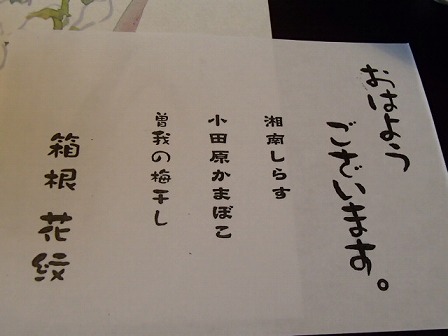 おはよう
ございます。
湘南しらす
小田原かまぼこ
曽我の梅干し
箱根 花紋